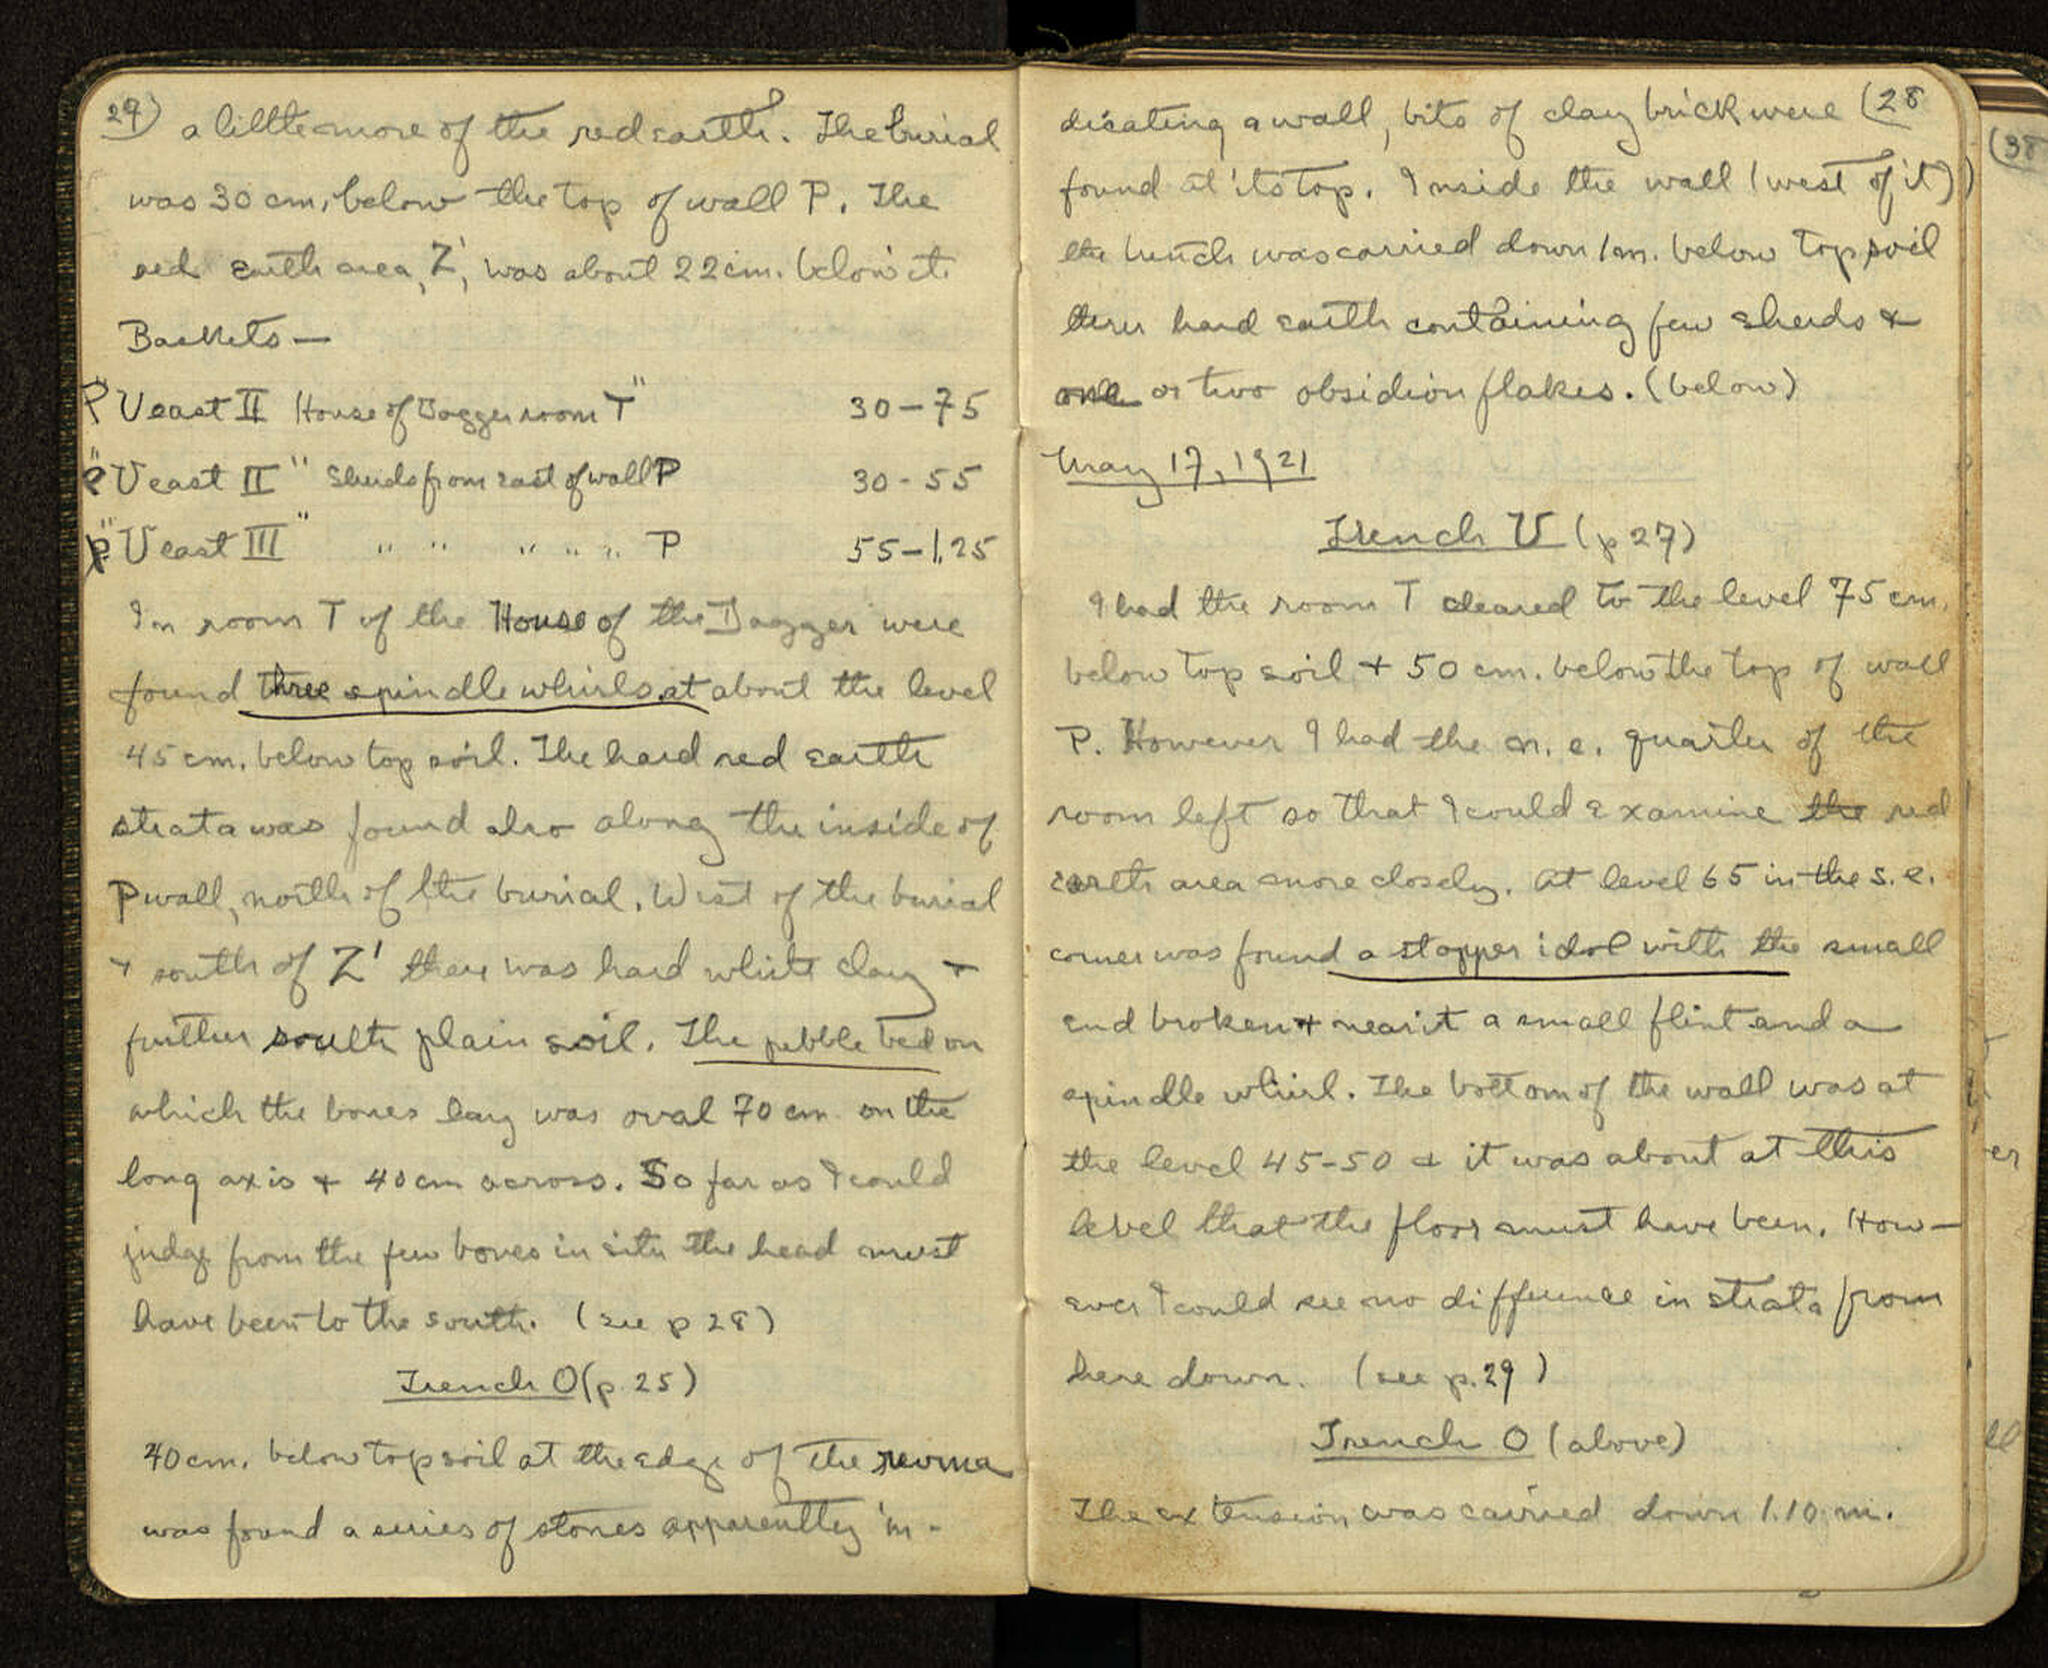 27) a little more of the red earth. The burial
was 30 cm. below the top of wall P. The
red earth area, Z', was about 22 cm. below it.
Baskets —
P "V east II House of Dagger room T" 30 – 75
P "V east II" Sherds from east of wall P 30 - 55
P "V east III" " " " " " P 55 – 1.25
In room T of the House of the Dagger were
found three spindle whirls at about the level
45 cm. below top soil. The hard red earth
strata was found also along the inside of
P wall, north of the burial. West of the burial
+ south of Z' there was hard white clay +
further south plain soil. The pebble bed on
which the bones lay was oval 70 cm on the
long axis + 40 cm across. So far as I could
judge from the few bones in situ the head must
have been to the south. (see p 28)
Trench O (p. 25)
40 cm. below top soil at the edge of the revma
was found a series of stones apparently in-
dicating a wall, bits of clay brick were (28
found at its top. Inside the wall (west of it)
the trench was carried down 1 m. below top soil
thru hard earth containing few sherds +
one or two obsidion flakes. (below)
May 17, 1921
Trench V (p 27)
I had the room T cleared to the level 75 cm.
below top soil + 50 cm. below the top of wall
P. However I had the n. e. quarter of the
room left so that I could examine the red
earth area more closely. At level 65 in the s. e.
corner was found a stopper idol with the small
end broken + near it a small flint and a
spindle whirl. The bottom of the wall was at
the level 45-50 + it was about at this
level that the floor must have been. How-
ever I could see no difference in strata from
here down. (see p. 29)
Trench O (above)
The extension was carried down 1.10 m.
(38
er
ll